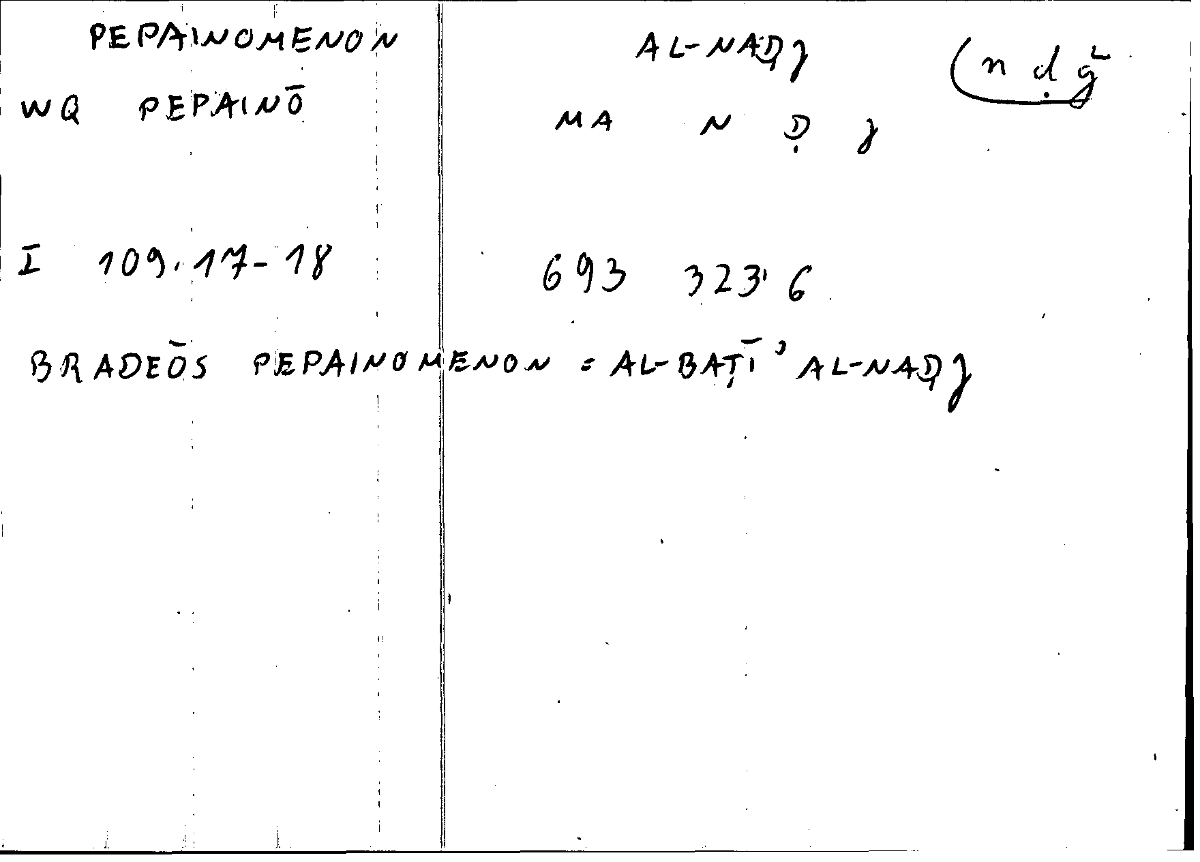 PEPAINOMENON AL-NAḌJ (n ḍ ǧ
WQ PEPAINŌ MA N Ḍ J
I 109.17-18 693 323.6
BRADEŌS PEPAINOMENON = AL-BAṬĪʾ AL-NAḌJ